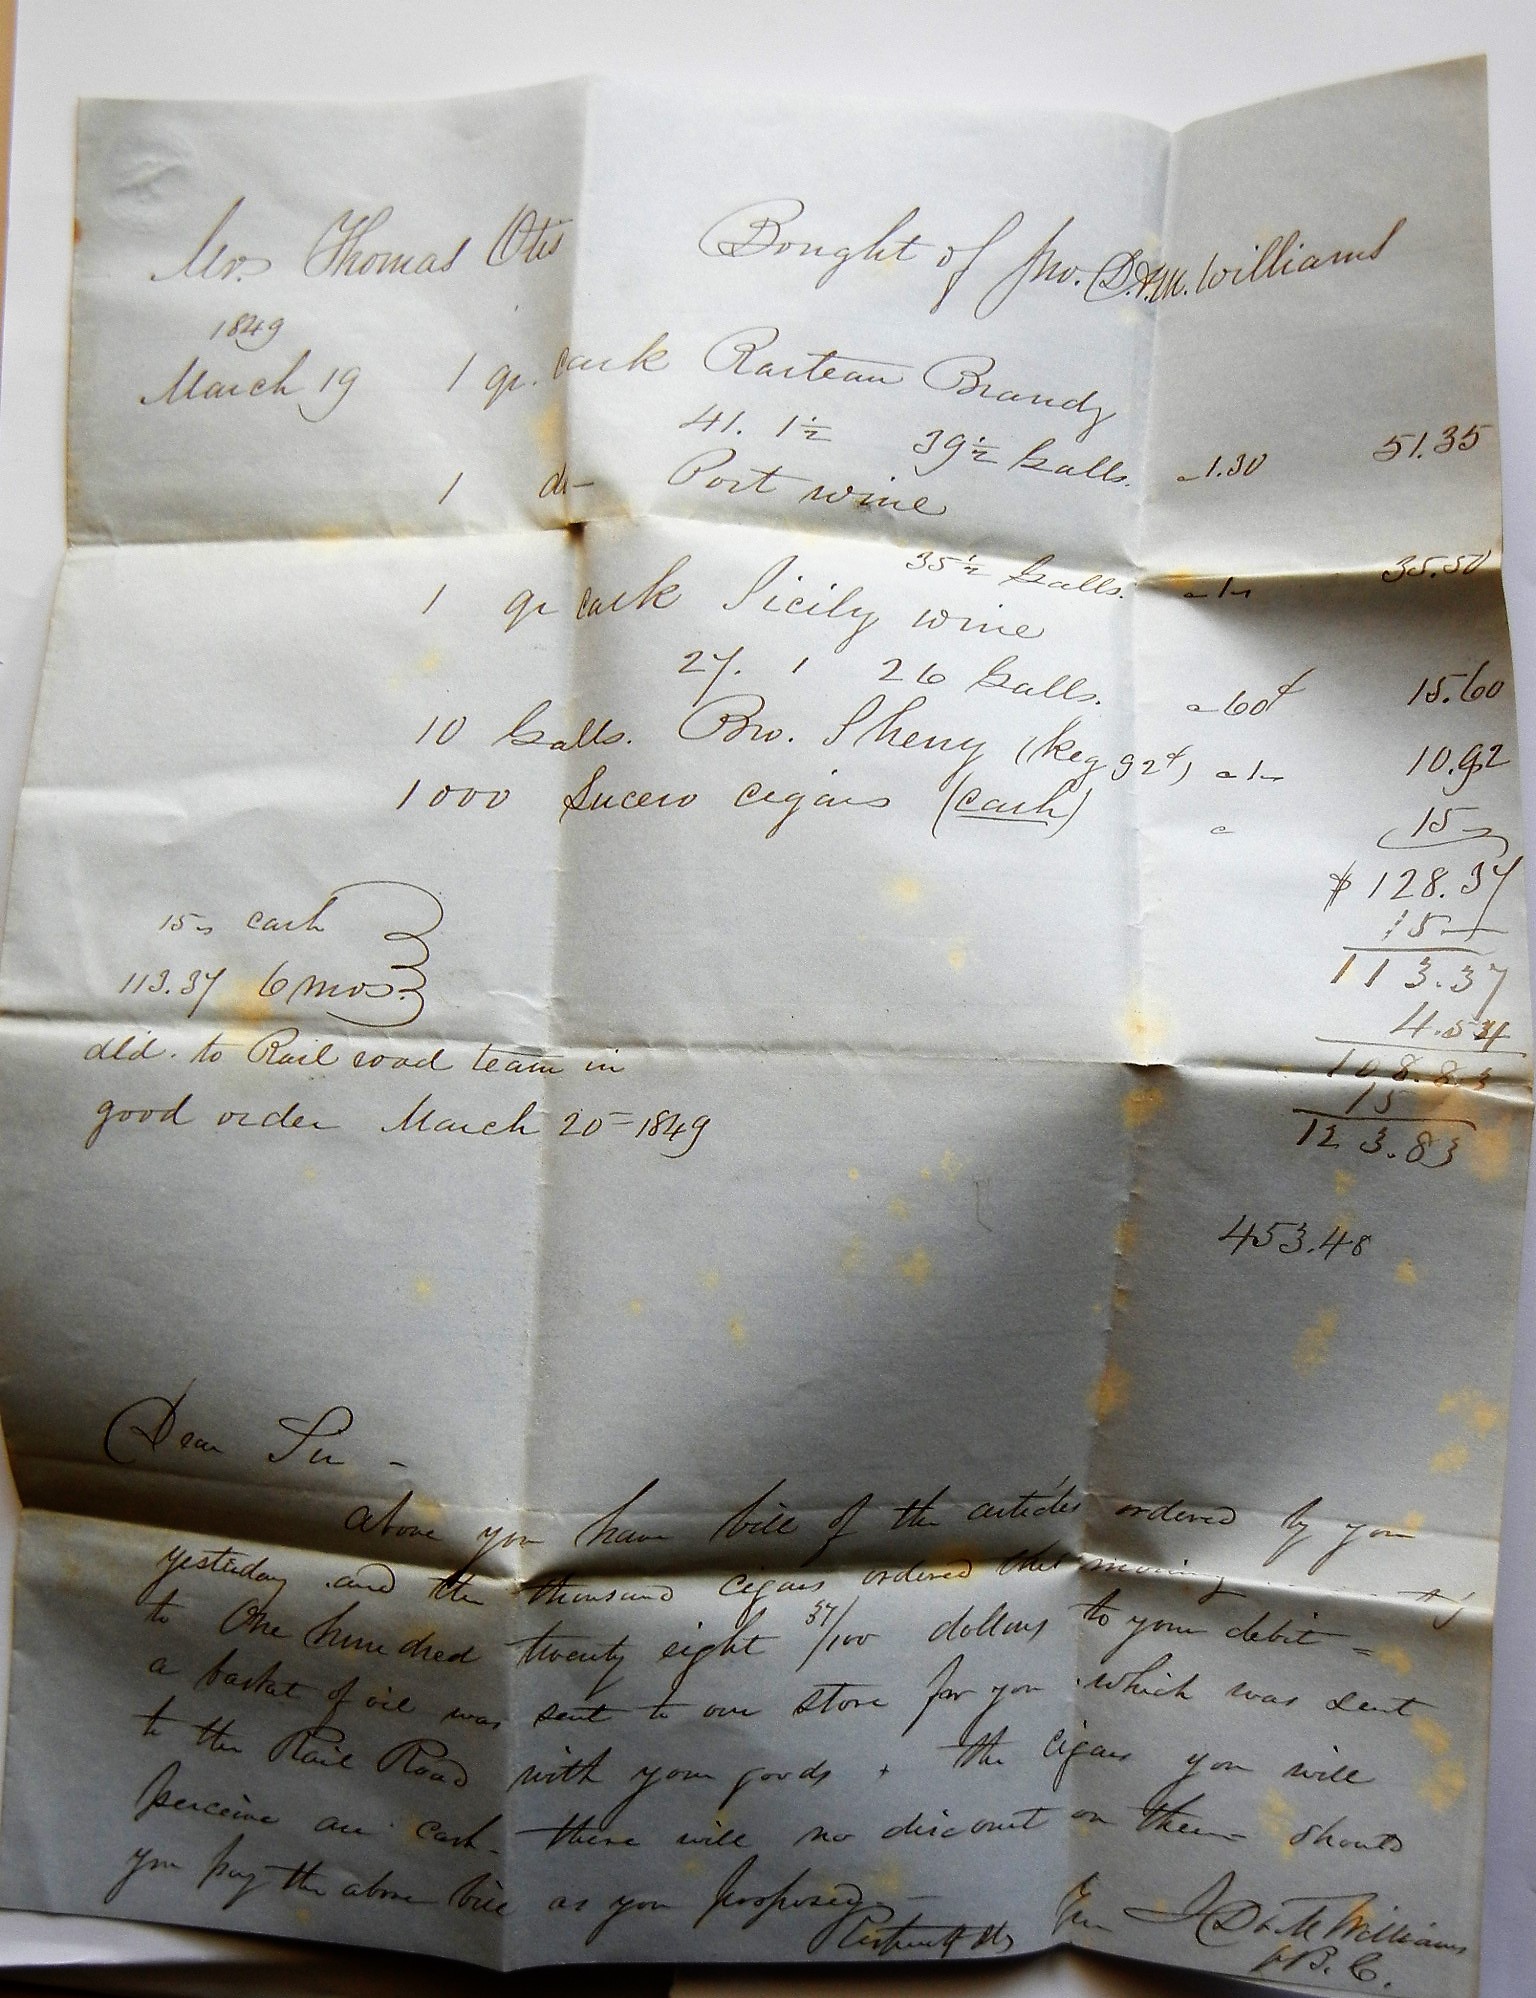 Mr. Thomas Otis Bought of Jno. D. & M. Williams
1849
March 19 1 qr. cask Rasteau Brandy
41. 1½ 39½ Galls. a 1.30 51.35
1 do Port wine
35½ Galls. a 1- 35.50
1 qr cask Sicily wine
27. 1 26 Galls. a 60¢ 15.60
10 Galls. Bro. Sherry (keg 92¢) a 1- 10.92
1000 Lucero cigars (cash) a 15-
$128.37
15-
15- cash
113.37
113.37 6 mos.
4.534
dld. to Rail road team in
108.83
15
good order March 20-1849
123.83
453.48
Dear Sir -
above you have bill of the articles ordered by you
yesterday and the thousand cigars ordered this morning
to One hundred twenty eight 37/100 dollars to your debit =
a basket of oil was sent to our store for you which was sent
to the Rail Road with your goods + the cigars you will
perceive are cash - there will no discount on them = should
you pay the above bill as you propose -
Yrs J D & M Williams
B. C.